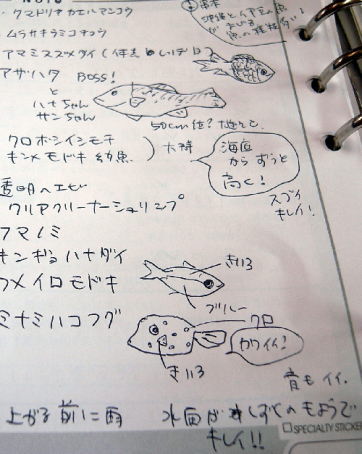 NOTE
・クマドリオカエルアンコウ
・ムラサキウミコチョウ
アマミスズメダイ
アザハタ BOSS!
と
ハナちゃん
サンちゃん
50cm位?
クロホシイシモチ
キンメモドキ 幼魚
大群
海底
から ずうっと
高く!
スゴイ
キレイ!
透明ヘエビ
クリアクリーナーシュリンプ
クマノミ
キンギョハナダイ
ウメイロモドキ
きいろ
ブルー
ミナミハコフグ
クロ
カワイイ!
きいろ
音もイイ.
上がる前に雨
水面が しずくのもようで
キレイ!!
SPECIALTY STICKER